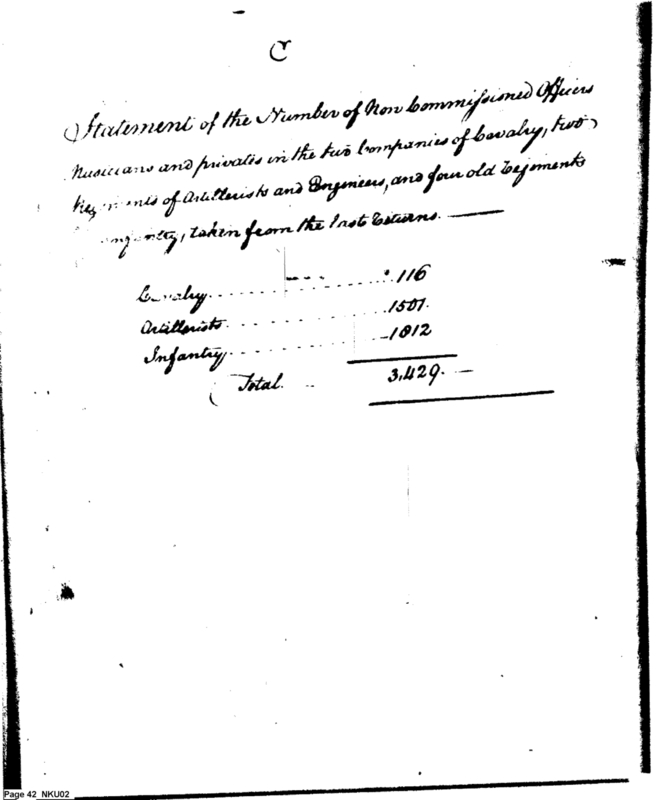 C
Statement of the Number of Non Commissioned Officers
Musicians and privates in the two Companies of Cavalry, two
Regiments of Artillerists and Engineers, and four old Regiments
Infantry, taken from the last Returns.
Cavalry 116
Artillerists 1501.
Infantry 1812
Total. 3,429.
Page 42 NKU02